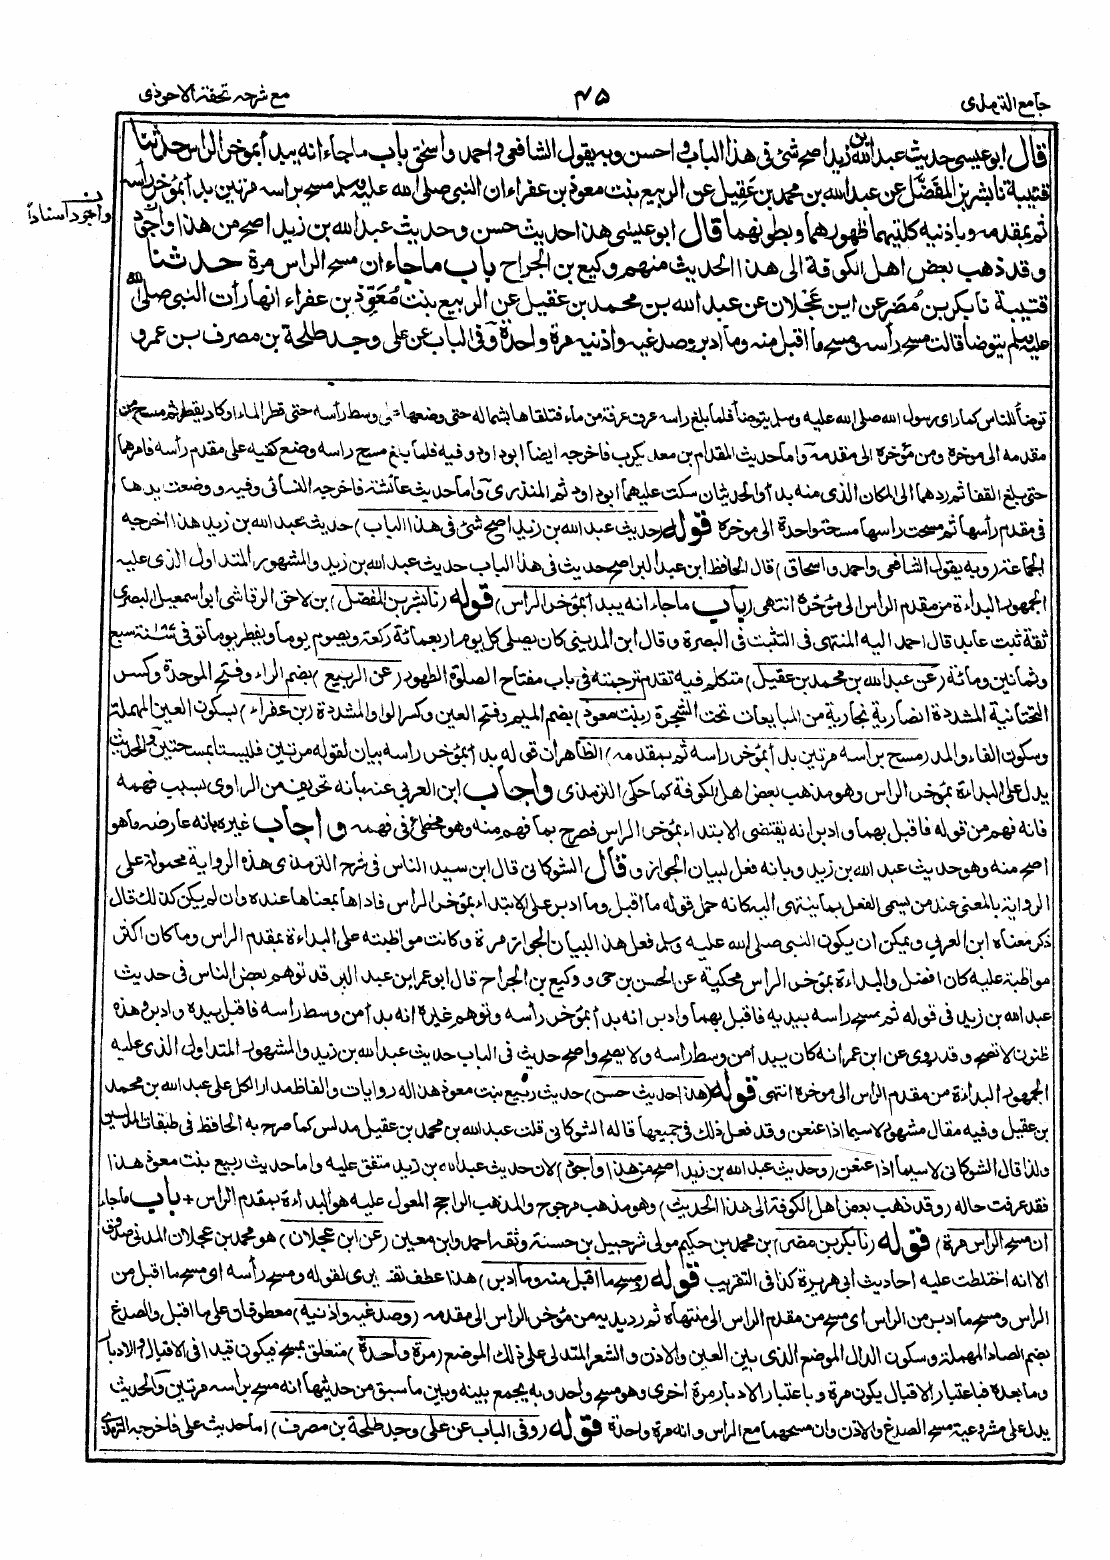 جامع الترمذی
۴۵
مع شرحہ تحفۃ الاحوذی
قال ابو عیسی حدیث عبد اللہ بن زید اصح شئ فی ھذا الباب و احسن وبہ یقول الشافعی و احمد و اسحٰق باب ماجاء انہ یبدأ بمؤخر الراس حدثنا
قتیبۃ نا بشر بن المفضل عن عبد اللہ بن محمد بن عقیل عن الربیع بنت معوذ بن عفراء ان النبی صلی اللہ علیہ وسلم مسح براسہ مرتین بدأ بمؤخر رأسہ
ثم بمقدمہ وباذنیہ کلتیھما ظھورھما وبطونھما قال ابو عیسٰی ھذا حدیث حسن وحدیث عبد اللہ بن زید اصح من ھذا واجود
واجود اسنادًا
وقد ذھب بعض اھل الکوفۃ الی ھذا الحدیث منھم وکیع بن الجراح باب ماجاء ان مسح الراس مرۃ حدثنا
قتیبۃ نا بکر بن مضر عن ابن عجلان عن عبد اللہ بن محمد بن عقیل عن الربیع بنت معوذ بن عفراء انھا رأت النبی صلی اللہ
علیہ وسلم یتوضأ قالت مسح رأسہ ومسح ما اقبل منہ وما ادبر وصدغیہ واذنیہ مرۃ واحدۃ وفی الباب عن علی وجد طلحۃ بن مصرف بن عمرو
توضأ للناس کما رای رسول اللہ صلی اللہ علیہ وسلم یتوضأ فلما بلغ راسہ غرف غرفۃ من ماء فتلقاھا بشمالہ حتی وضعھا علی وسط رأسہ حتی قطر الماء او کاد یقطر ثم مسح من
مقدمہ الی موخرہ ومن مؤخرہ الی مقدمہ واما حدیث المقدام بن معد یکرب فاخرجہ ایضا ابو داود وفیہ فلما بلغ مسح راسہ وضع کفیہ علی مقدم رأسہ فامرھما
حتی بلغ القفا ثم ردھما الی المکان الذی منہ بدأ والحدیثان سکت علیھما ابو داود ثم المنذری واما حدیث عائشۃ فاخرجہ النسائی وفیہ ووضعت یدھا
فی مقدم رأسھا ثم مسحت راسھا مسحۃ واحدۃ الی موخرہ قولہ (حدیث عبد اللہ بن زید اصح شئ فی ھذا الباب) حدیث عبد اللہ بن زید ھذا اخرجہ
الجماعۃ (وبہ یقول الشافعی واحمد واسحاق) قال الحافظ ابن عبد البر اصح حدیث فی ھذا الباب حدیث عبد اللہ بن زید والمشھور المتداول الذی علیہ
الجمھور البداءۃ من مقدم الراس الی مؤخرہ انتھی (باب ماجاء انہ یبدأ بمؤخر الراس) قولہ (نا بشر بن المفضل) بن لاحق الرقاشی ابو اسمعیل البصری
ثقۃ ثبت عابد قال احمد الیہ المنتھی فی التثبت فی البصرۃ وقال ابن المدینی کان یصلی کل یوم اربعمائۃ رکعۃ ویصوم یوما ویفطر یوما توفی سنۃ سبع
وثمانین ومائۃ (عن عبد اللہ بن محمد بن عقیل) متکلم فیہ تقدم ترجمتہ فی باب مفتاح الصلوۃ الطھور (عن الربیع) بضم الراء وفتح الموحدۃ وکسر
التحتانیۃ المشددۃ انصاریۃ نجاریۃ من المبایعات تحت الشجرۃ (بنت معوذ) بضم المیم وفتح العین وکسر الواو المشددۃ (بن عفراء) بسکون العین المھملۃ
وسکون الفاء والمد (مسح براسہ مرتین بدأ بمؤخر راسہ ثم بمقدمہ) الظاھر ان قولہ بدأ بمؤخر راسہ بیان لقولہ مرتین فلیستا بمسحتین والحدیث
یدل علی البداءۃ بمؤخر الراس وھو مذھب بعض اھل الکوفۃ کما حکی الترمذی واجاب ابن العربی عنہ بانہ تحریف من الراوی بسبب فھمہ
فانہ فھم من قولہ فاقبل بھما وادبر انہ یقتضی الابتداء بمؤخر الراس فصرح بما فھم منہ وھو مخطئ فی فھمہ واجاب غیرہ بانہ عارضہ ماھو
اصح منہ وھو حدیث عبد اللہ بن زید وبانہ فعل لبیان الجواز وقال الشوکانی قال ابن سید الناس فی شرح الترمذی ھذہ الروایۃ محمولۃ علی
الروایۃ بالمعنی عند من یسمی الفعل بما ینتھی الیہ کانہ حمل قولہ ما اقبل وما ادبر علی الابتداء بمؤخر الراس فاداھا بمعناھا عندہ وان لم یکن کذلک قال
ذکر معناہ ابن العربی ویمکن ان یکون النبی صلی اللہ علیہ وسلم فعل ھذا لبیان الجواز مرۃ وکانت مواظبتہ علی البداءۃ بمقدم الراس وما کان اکثر
مواظبۃ علیہ کان افضل والبداءۃ بمؤخر الراس محکیۃ عن الحسن بن حی ووکیع بن الجراح قال ابو عمر ابن عبد البر قد توھم بعض الناس فی حدیث
عبد اللہ بن زید فی قولہ ثم مسح راسہ بیدیہ فاقبل بھما وادبر انہ بدأ بمؤخر رأسہ وتوھم غیرہ انہ بدأ من وسط راسہ فاقبل بیدہ وادبر وھذہ
ظنون لا تصح وقد روی عن ابن عمر انہ کان یبدأ من وسط راسہ ولا یصح واصح حدیث فی الباب حدیث عبد اللہ بن زید والمشھور المتداول الذی علیہ
الجمھور البداءۃ من مقدم الراس الی موخرہ انتھی قولہ (ھذا حدیث حسن) حدیث ربیع بنت معوذ ھذا لہ روایات والفاظ مدار الکل علی عبد اللہ بن محمد
بن عقیل وفیہ مقال مشھور لا سیما اذا عنعن وقد فعل ذلک فی جمیعھا قالہ الشوکانی قلت عبد اللہ بن محمد بن عقیل مدلس کما صرح بہ الحافظ فی طبقات المدلسین
ولذا قال الشوکانی لا سیما اذا عنعن (وحدیث عبد اللہ بن زید اصح من ھذا واجود) لان حدیث عبد اللہ بن زید متفق علیہ واما حدیث ربیع بنت معوذ ھذا
فقد عرفت حالہ (وقد ذھب بعض اھل الکوفۃ الی ھذا الحدیث) وھو مذھب مرجوح والمذھب الراجح المعول علیہ ھو البداءۃ بمقدم الراس + باب ماجاء
ان مسح الراس مرۃ) قولہ (نا بکر بن مضر) بن محمد بن حکیم مولی شرحبیل بن حسنۃ وثقہ احمد وابن معین (عن ابن عجلان) ھو محمد بن عجلان المدنی صدوق
الا انہ اختلطت علیہ احادیث ابی ھریرۃ کذا فی التقریب قولہ (ومسح ما اقبل منہ وما ادبر) ھذا عطف تفسیری لقولہ ومسح رأسہ ای مسح ما اقبل من
الراس ومسح ما ادبر من الراس ای مسح من مقدم الراس الی منتھاہ ثم رد یدیہ من مؤخر الراس الی مقدمہ (وصدغیہ واذنیہ) معطوفان علی ما اقبل والصدغ
بضم الصاد المھملۃ وسکون الدال الموضع الذی بین العین والاذن والشعر المتدلی علی ذلک الموضع (مرۃ واحدۃ) متعلق بمسح فیکون قیدا فی الاقبال والادبار
وما بعدہ فباعتبار الاقبال یکون مرۃ وباعتبار الادبار مرۃ اخری وھو مسح واحد وبہ یجمع بینہ وبین ما سبق من حدیثھا انہ مسح براسہ مرتین والحدیث
یدل علی مشروعیۃ مسح الصدغ والاذن وان مسحھما مع الراس وانہ مرۃ واحدۃ قولہ (وفی الباب عن علی وجد طلحۃ بن مصرف) اما حدیث علی فاخرجہ الترمذی